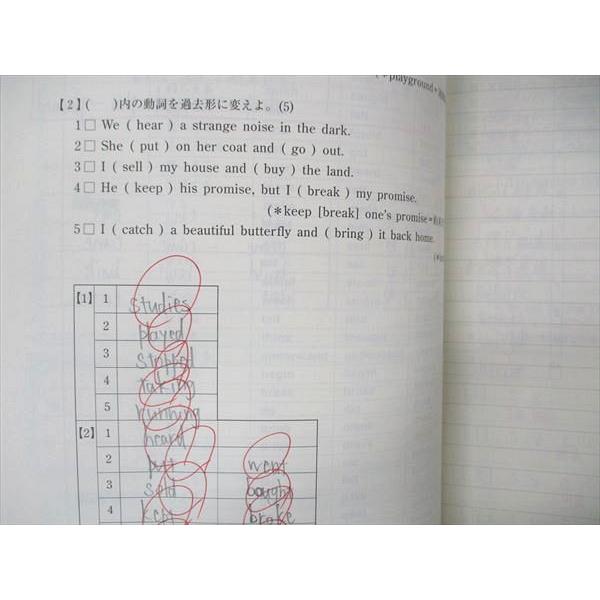 (*playground=
【2】(　　)内の動詞を過去形に変えよ。(5)
1□ We ( hear ) a strange noise in the dark.
2□ She ( put ) on her coat and ( go ) out.
3□ I ( sell ) my house and ( buy ) the land.
4□ He ( keep ) his promise, but I ( break ) my promise.
(*keep [break] one's promise=
5□ I ( catch ) a beautiful butterfly and ( bring ) it back home.
【1】 1 studies
2 played
3 stopped
4 taking
5 running
【2】 1 heard
2 put went
3 sold bought
4 kept broke